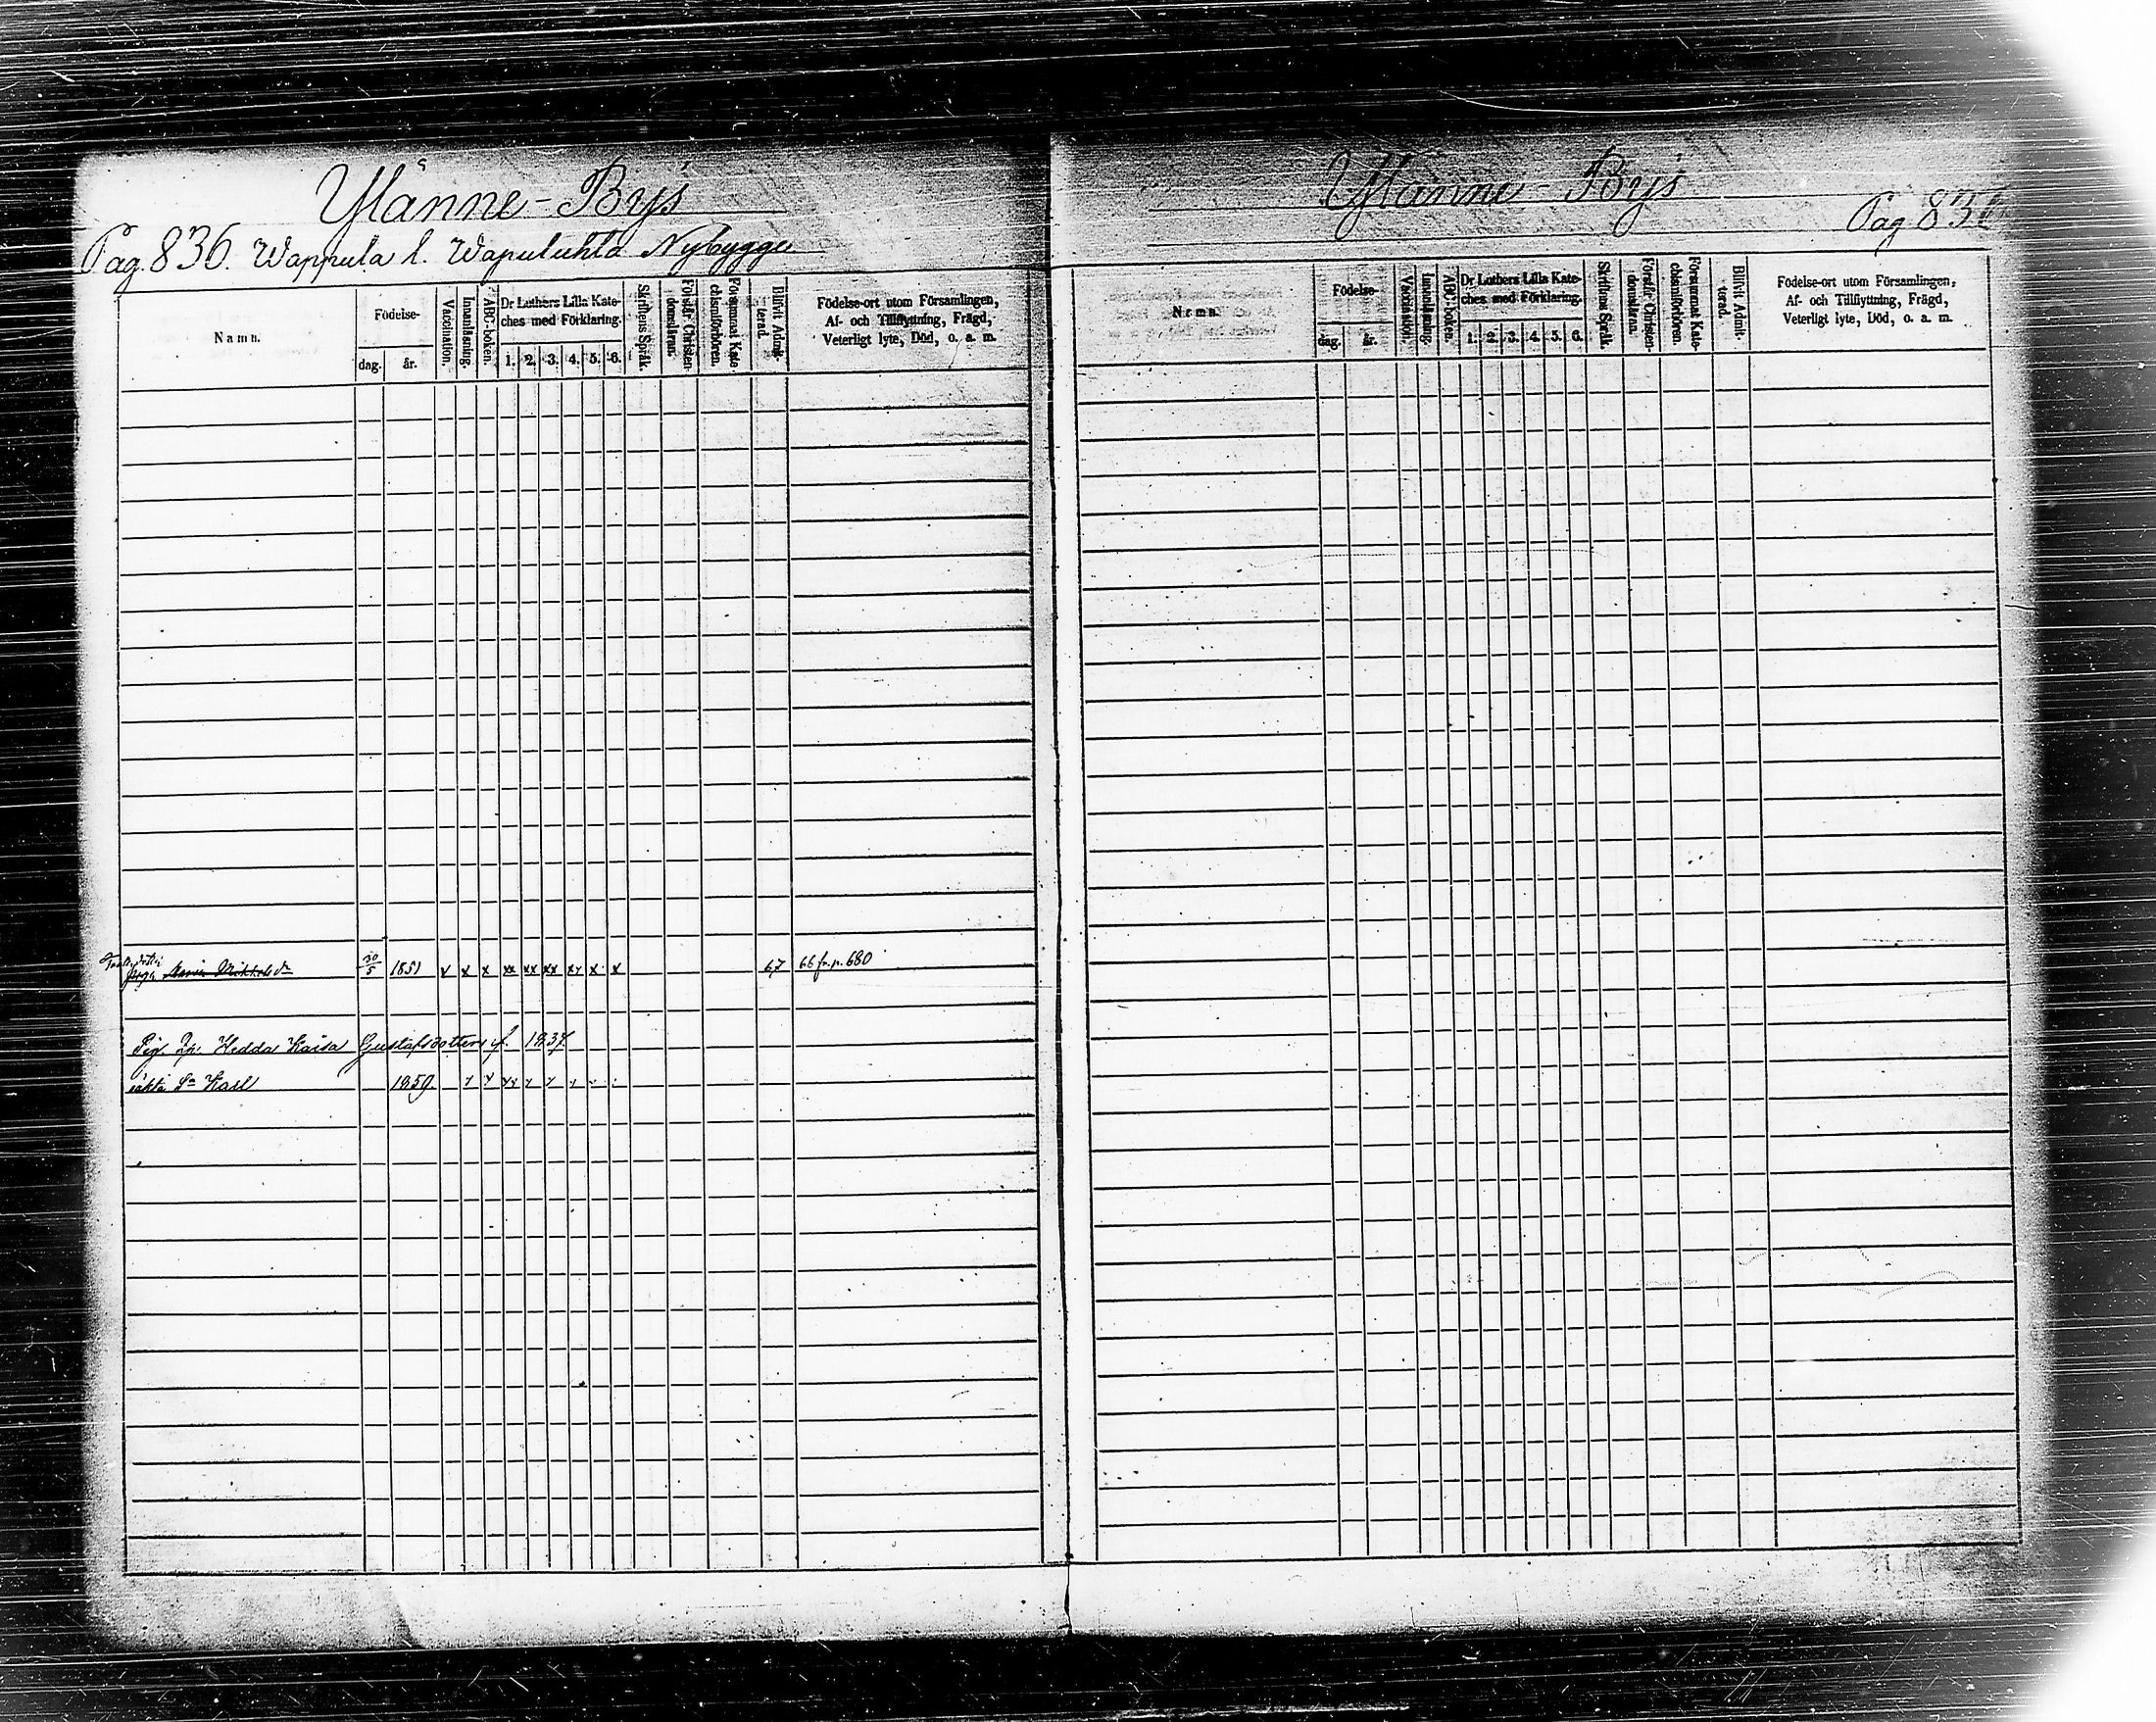 Ylänne-Bys
Pag. 836. Wappula l. Wapuluhta Nybygge
Namn.
Födelse-
dag. år.
Vaccination.
Innanläsning.
ABC-boken.
Dr Luthers Lilla Kate-
ches med Förklaring.
1. 2. 3. 4. 5. 6.
Skriftens Språk.
Förstår Christen-
domsläran.
Försummat Kate-
chismiförhören.
Blifvit Admit-
terad.
Födelse-ort utom Församlingen,
Af- och Tillflyttning, Frägd,
Veterligt lyte, Död, o. a. m.
Maria Mikkelsdr 30/5 1851 x x x xx xx xx xx x x 67 66 fr. p. 680
Pig. Hedda Kaisa Gustafsdotter f. 1837
oäkta Sn Karl 1859
Ylänne-Bys
Pag 836
Namn.
Födelse-
dag. år.
Vaccination.
Innanläsning.
ABC-boken.
Dr Luthers Lilla Kate-
ches med Förklaring.
1. 2. 3. 4. 5. 6.
Skriftens Språk.
Förstår Christen-
domsläran.
Försummat Kate-
chismiförhören.
Blifvit Admit-
terad.
Födelse-ort utom Församlingen,
Af- och Tillflyttning, Frägd,
Veterligt lyte, Död, o. a. m.